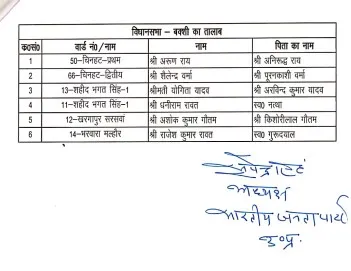 विधानसभा - बक्शी का तालाब
क०सं० वार्ड नं०/नाम नाम पिता का नाम
1 50-चिनहट-प्रथम श्री अरूण राय श्री अनिरूद्ध राय
2 66-चिनहट-द्वितीय श्री शैलेन्द्र वर्मा श्री पूरनकाशी वर्मा
3 13-शहीद भगत सिंह-1 श्रीमती योगिता यादव श्री अरविन्द कुमार यादव
4 11-शहीद भगत सिंह-1 श्री धनीराम रावत स्व० नत्था
5 12-खरगापुर सरसवां श्री अशोक कुमार गौतम श्री किशोरीलाल गौतम
6 14-भरवारा मल्हौर श्री राजेश कुमार रावत स्व० गुरूदयाल
अध्यक्ष
भारतीय जनता पार्टी
उ०प्र०